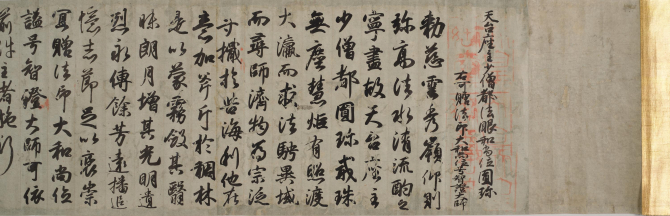 天台座主少僧都法眼和尚位圓珎
右可贈法印大和尚位号智證大師
勅慈雲秀嶺仰則
弥高法水清流酌之
寧盡故天台座主
少僧都圓珎戒珠
無塵慧炬有照渡
大瀛而求法騁異域
而尋師濟物為宗泛
寸檝於苦海利他在
意加斧斤於稠林
是以蒙霧斂其翳
昧朗月増其光明遺
烈永傳餘芳遠播追
憶志節足以褒崇
冝贈法印大和尚位
謚号智證大師可依
前件主者施行